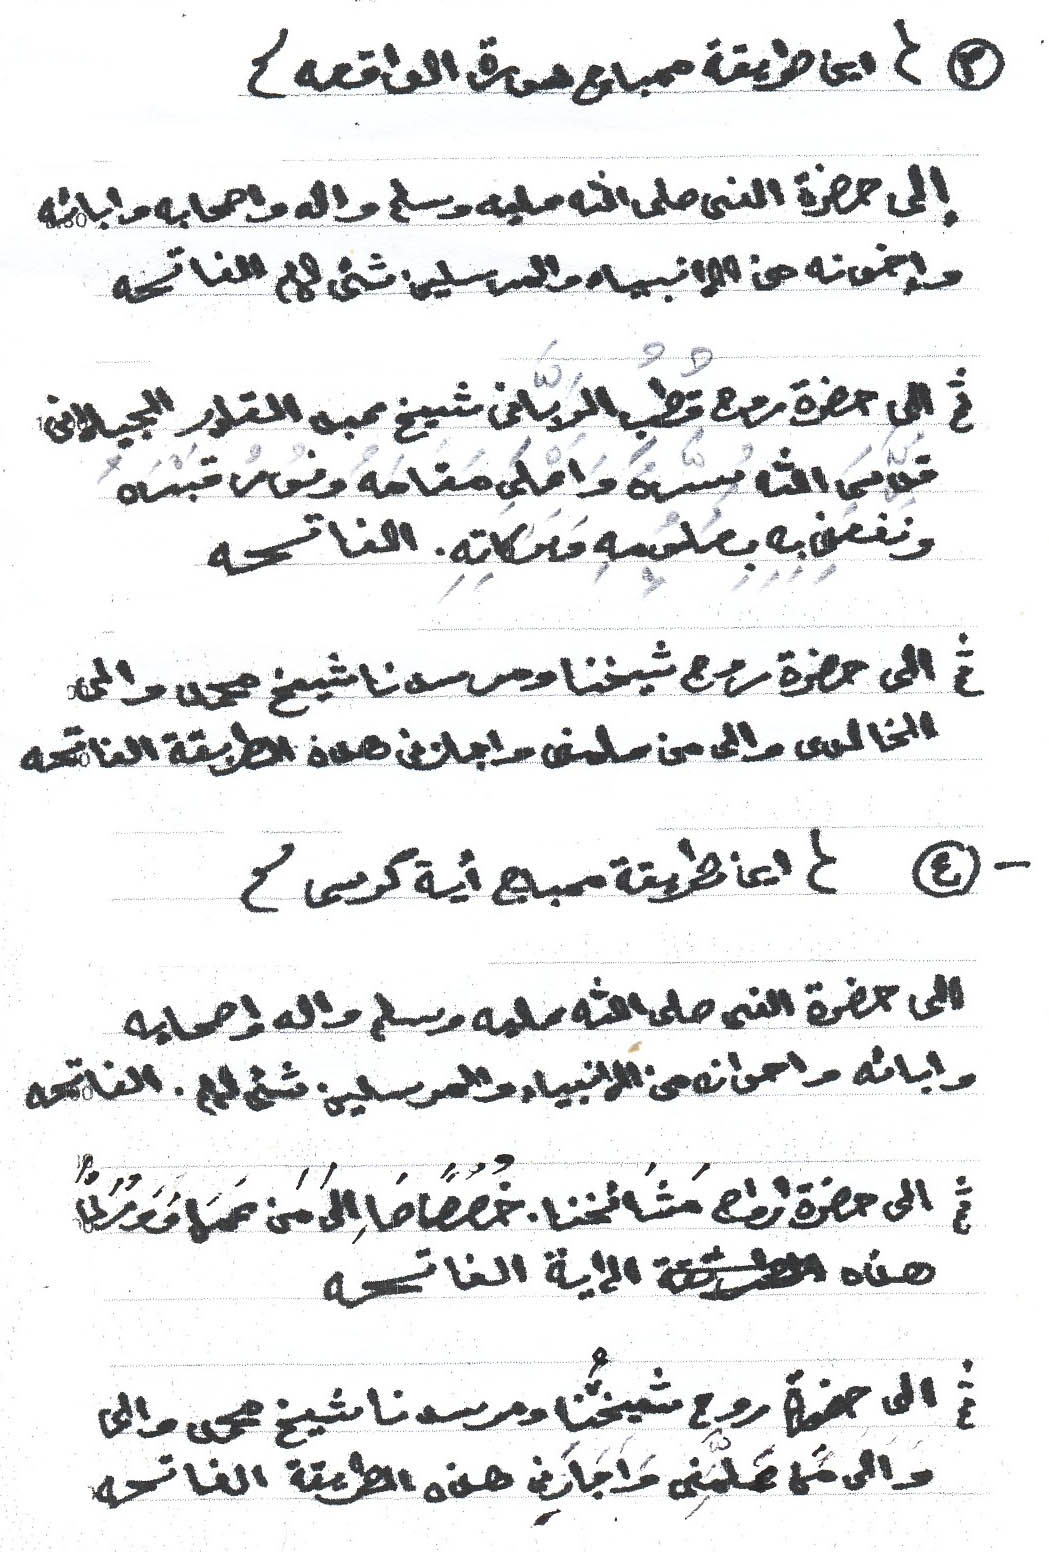 ٣ { اين طريقة مباچ سورة الواقعه }
إلى حضرة النبى صلى الله عليه وسلم واله واصحابه وابائه
وإخوانه من الانبياء والمرسلين شئ لهم الفاتحه
ثم الى حضرة روح قُطْبُ الرَّبَّانى شيخ عبد القادر الجيلانى
قدَّسَ الله سِرَّهُ وَاَعْلَى مَقَامَهُ ونَوَّرَ قَبْرَهُ
ونفعنى بِهِ بِعلومِهِ وَبَرَكَاتِهِ. الفاتحه
ثم الى حضرة روح شيخنا ومرسدنا شيخ محى والى
الخالدى والى من علمنى واجازنى هذه الطريقة الفاتحه
- ٤ { اين طريقة مباچ أية كرسى }
الى حضرة النبى صلى الله عليه وسلم واله واصحابه
وابائه واخوانه من الانبياء والمرسلين شئ لهم. الفاتحه
ثم الى حضرة ارواح مَشَائخنا. خُصُصًا اِلَى مَن
هذه الاية الفاتحه
ثم الى حضرة روح شيخُنا ومرسدنا شيخ محى والى
وَالى مَن عَلَّمَنِى وَاَجَازَنِى هذه الطريقة الفاتحه